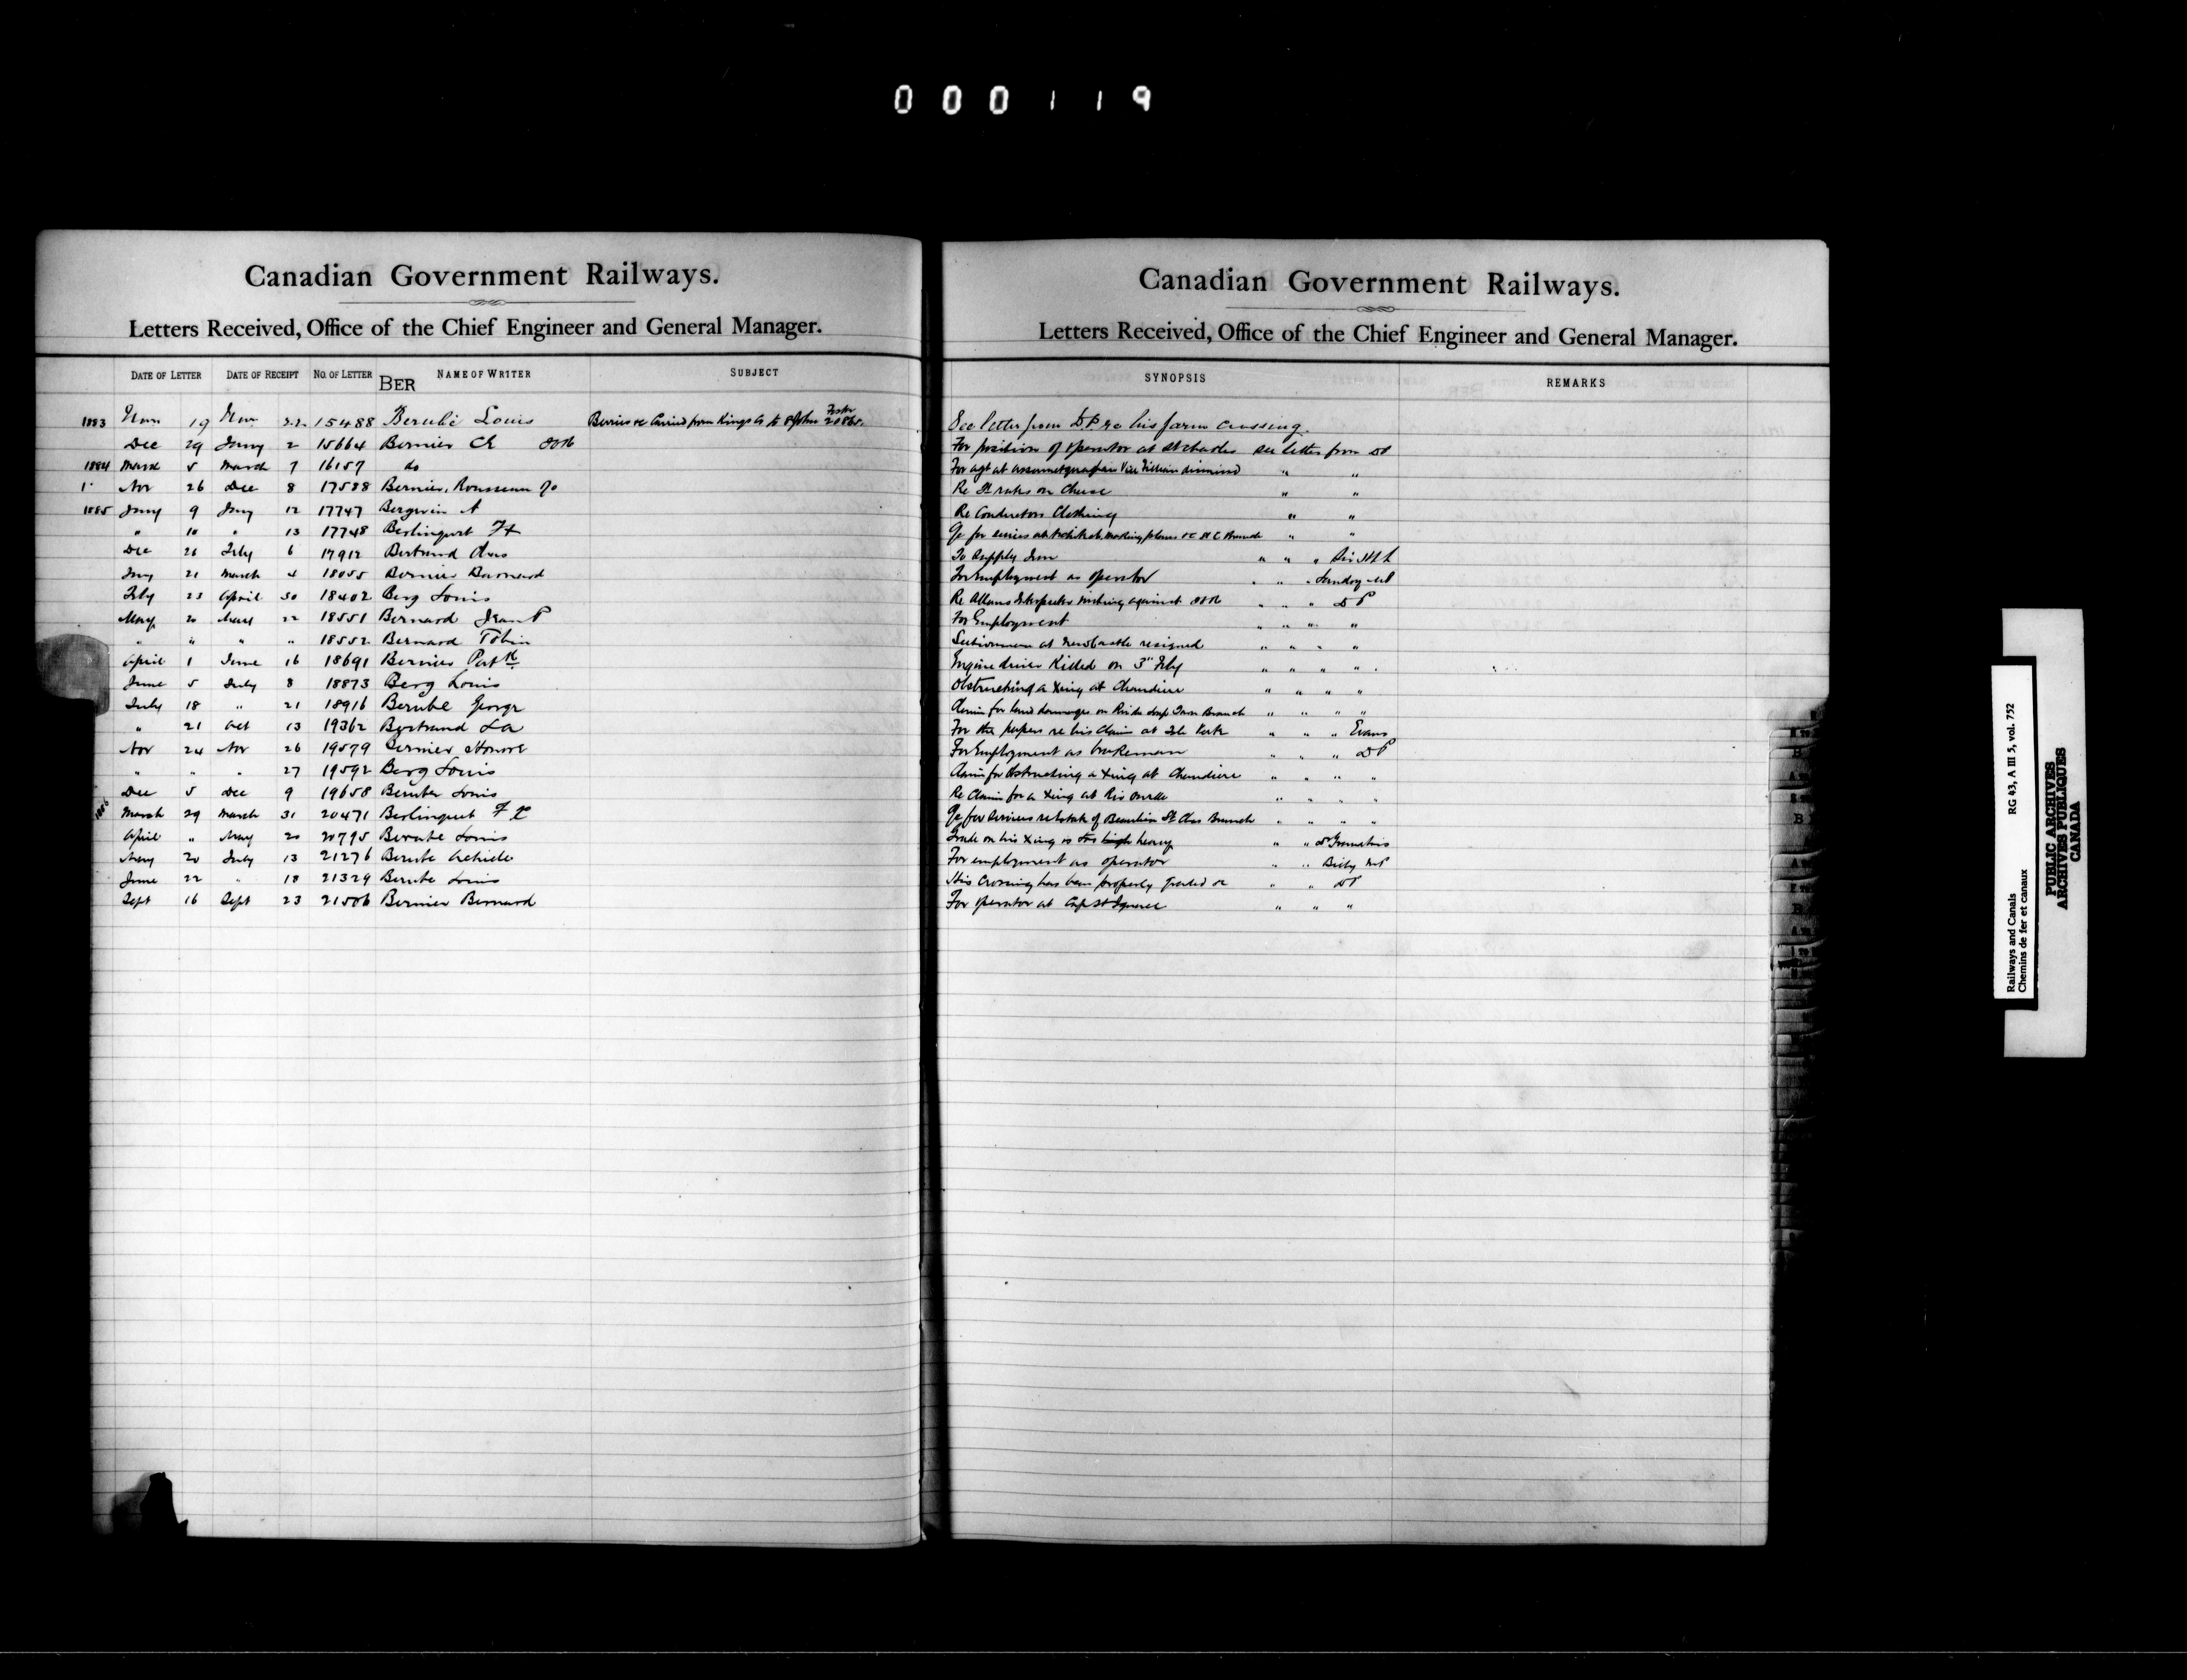 000119
Canadian Government Railways.
Letters Received, Office of the Chief Engineer and General Manager.
DATE OF LETTER DATE OF RECEIPT NO. OF LETTER NAME OF WRITER SUBJECT
BER
1883 Nov 19 Nov 22 15488 Berubé Louis Berries &c Carried from Kings Co to St John Foster 20865
Dec 29 Jany 2 15664 Bernier CE
1884 March 5 March 7 16157 do
Nov 26 Dec 8 17588 Bernier, Rousseau
1885 Jany 9 Jany 12 17747 Bergevin A
" 10 " 13 17748 Berlinguet
Dec 26 Feby 6 17912 Bertrand Chas
Jany 21 March 4 18055 Bernier Barnard
Feby 23 April 30 18402 Berg Louis
May 20 May 22 18551 Bernard Jean P
" " " " 18552 Bernard Tobin
April 1 June 16 18691 Bernier Patk
June 5 July 8 18873 Berg Louis
July 18 " 21 18916 Berube George
" 21 Oct 13 19362 Bertrand La
Nov 24 Nov 26 19579 Bernier Honore
" " " 27 19592 Berg Louis
Dec 5 Dec 9 19658 Berube Louis
1886 March 29 March 31 20471 Berlinguet F X
April " May 20 20795 Berube Louis
May 20 July 13 21276 Berube Achiele
June 22 " 18 21329 Berube Louis
Sept 16 Sept 23 21506 Bernier Bernard
Canadian Government Railways.
Letters Received, Office of the Chief Engineer and General Manager.
SYNOPSIS REMARKS
See letter from DP re his farm crossing.
For position of operator at St Charles see letter from DP
For agt at dismissed " "
Re rates on Cheese " "
Re Conductors Clothing " "
for services Branch " "
To Supply Iron " " "
For Employment as operator " " " Landry MP
Re against " " " DP
For Employment " " " "
Sectionman at Newcastle resigned " " " "
Engine driver Killed on 3rd Feby " " " "
Obstructing a Xing at Chaudiere " " " "
Claim for land damages on Branch " " " "
For the papers re his Claim at Isle Verte " " " Evans
For Employment as brakeman " " " DP
Claim for Obstructing a Xing at Chaudiere " " " "
Re Claim for a Xing at Riv Ouelle " " " "
for services Branch " " " "
Grade on his Xing is too high heavy " "
For employment as operator " " MP
His Crossing has been properly graded &c " " DP
For operator at Cap St Ignace " " "
Railways and Canals RG 43, A III 5, vol. 752
Chemins de fer et canaux
PUBLIC ARCHIVES
ARCHIVES PUBLIQUES
CANADA